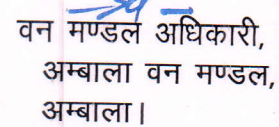 वन मण्डल अधिकारी,
अम्बाला वन मण्डल,
अम्बाला।